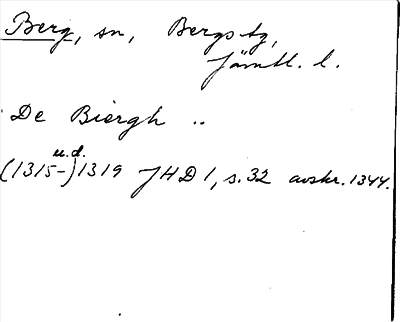 Berg, sn, Bergs tg,
Jämtl. l.
De Biergh ..
u.d.
(1315-) 1319 JHD 1, s. 32 avskr. 1344.